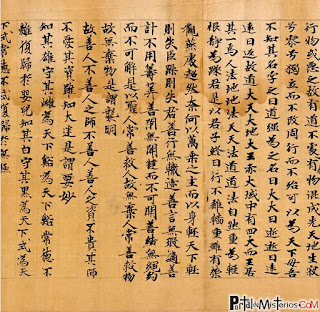 行物或惡之故有道物混成先天地生寂
兮寥兮獨立不改周行而不殆可以為天下母吾
不知其名字之曰道強為之名曰大大曰逝逝曰遠
遠曰返道大天大地大王亦大域中有四大而王居
其一焉人法地地法天天法道道法自然重為輕
根靜為躁君是以君子終日行不離輜重雖有榮
觀燕處超然奈何以萬乘之主而以身輕天下輕
則失臣躁則失君善行無轍迹善言無瑕讁善
計不用籌筭善閇無關鍵不可開善結無繩約
而不可解是以聖人常善救人故無棄人常善救物
故無棄物是謂襲明
故善人不善人之師不善人善人之資不貴其師
不愛其資雖知大迷是謂要妙
知其雄守其雌為天下谿為天下谿常德不
離復歸於嬰兒知其白守其黑為天下式為天
下式常德不忒復歸於無極
PortalMisterios.COM